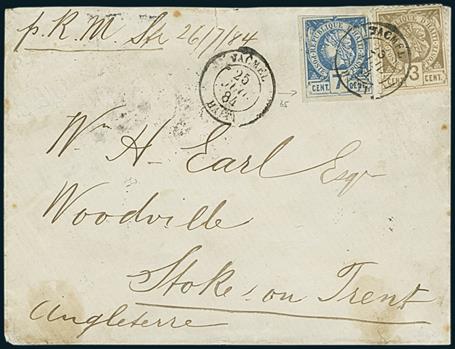 p. R. M Str 26/7/84
JACMEL
25
JUIL
84
HAITI
REPUBLIQUE D'HAITI
CENT. 7 CENT.
JACMEL
REPUBLIQUE D'HAITI
3 CENT.
W. H. Earl Esqr
Woodville
Stoke on Trent
Angleterre